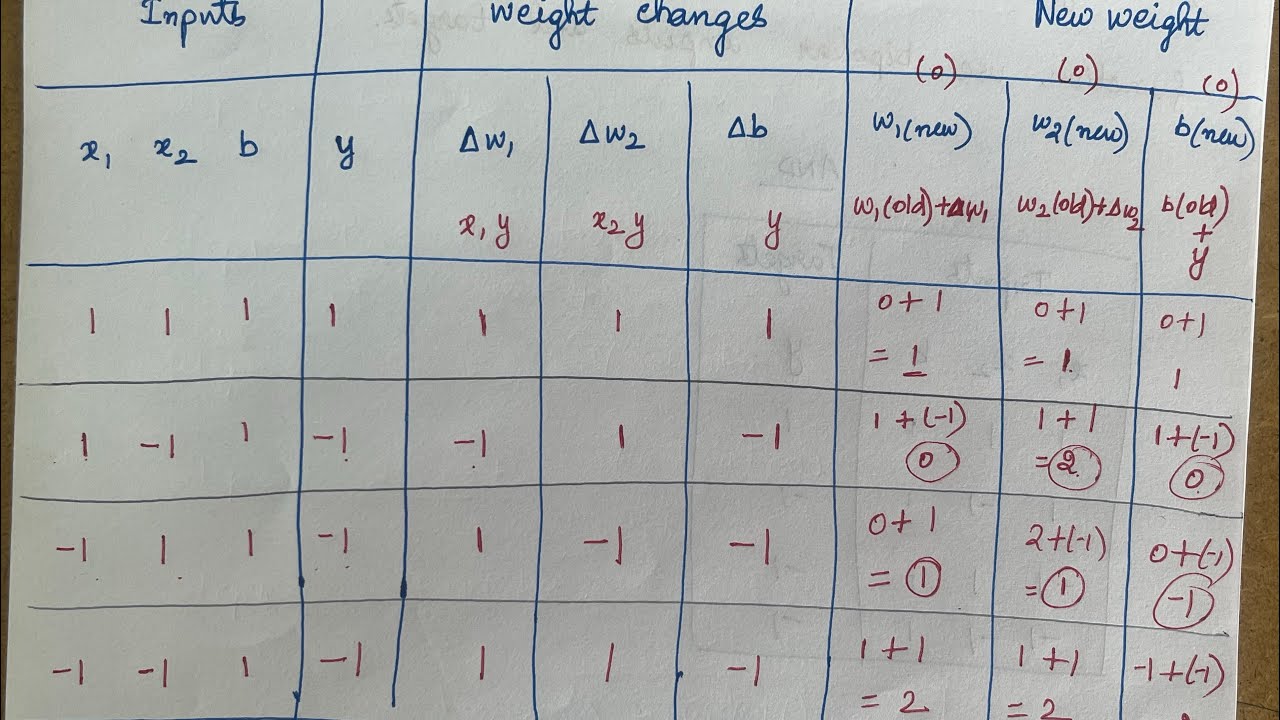 Inputs weight changes New weight
(0) (0) (0)
x₁ x₂ b y Δw₁ Δw₂ Δb w₁(new) w₂(new) b(new)
x₁y x₂y y w₁(old)+Δw₁ w₂(old)+Δw₂ b(old)
+
y
1 1 1 1 1 1 1 0+1 0+1 0+1
= 1 = 1 1
1 -1 1 -1 -1 1 -1 1+(-1) 1+1 1+(-1)
0 =2 0
-1 1 1 -1 1 -1 -1 0+1 2+(-1) 0+(-1)
= 1 = 1 -1
-1 -1 1 -1 1 1 -1 1+1 1+1 -1+(-1)
= 2 = 2
AND
Inputs Targets
y